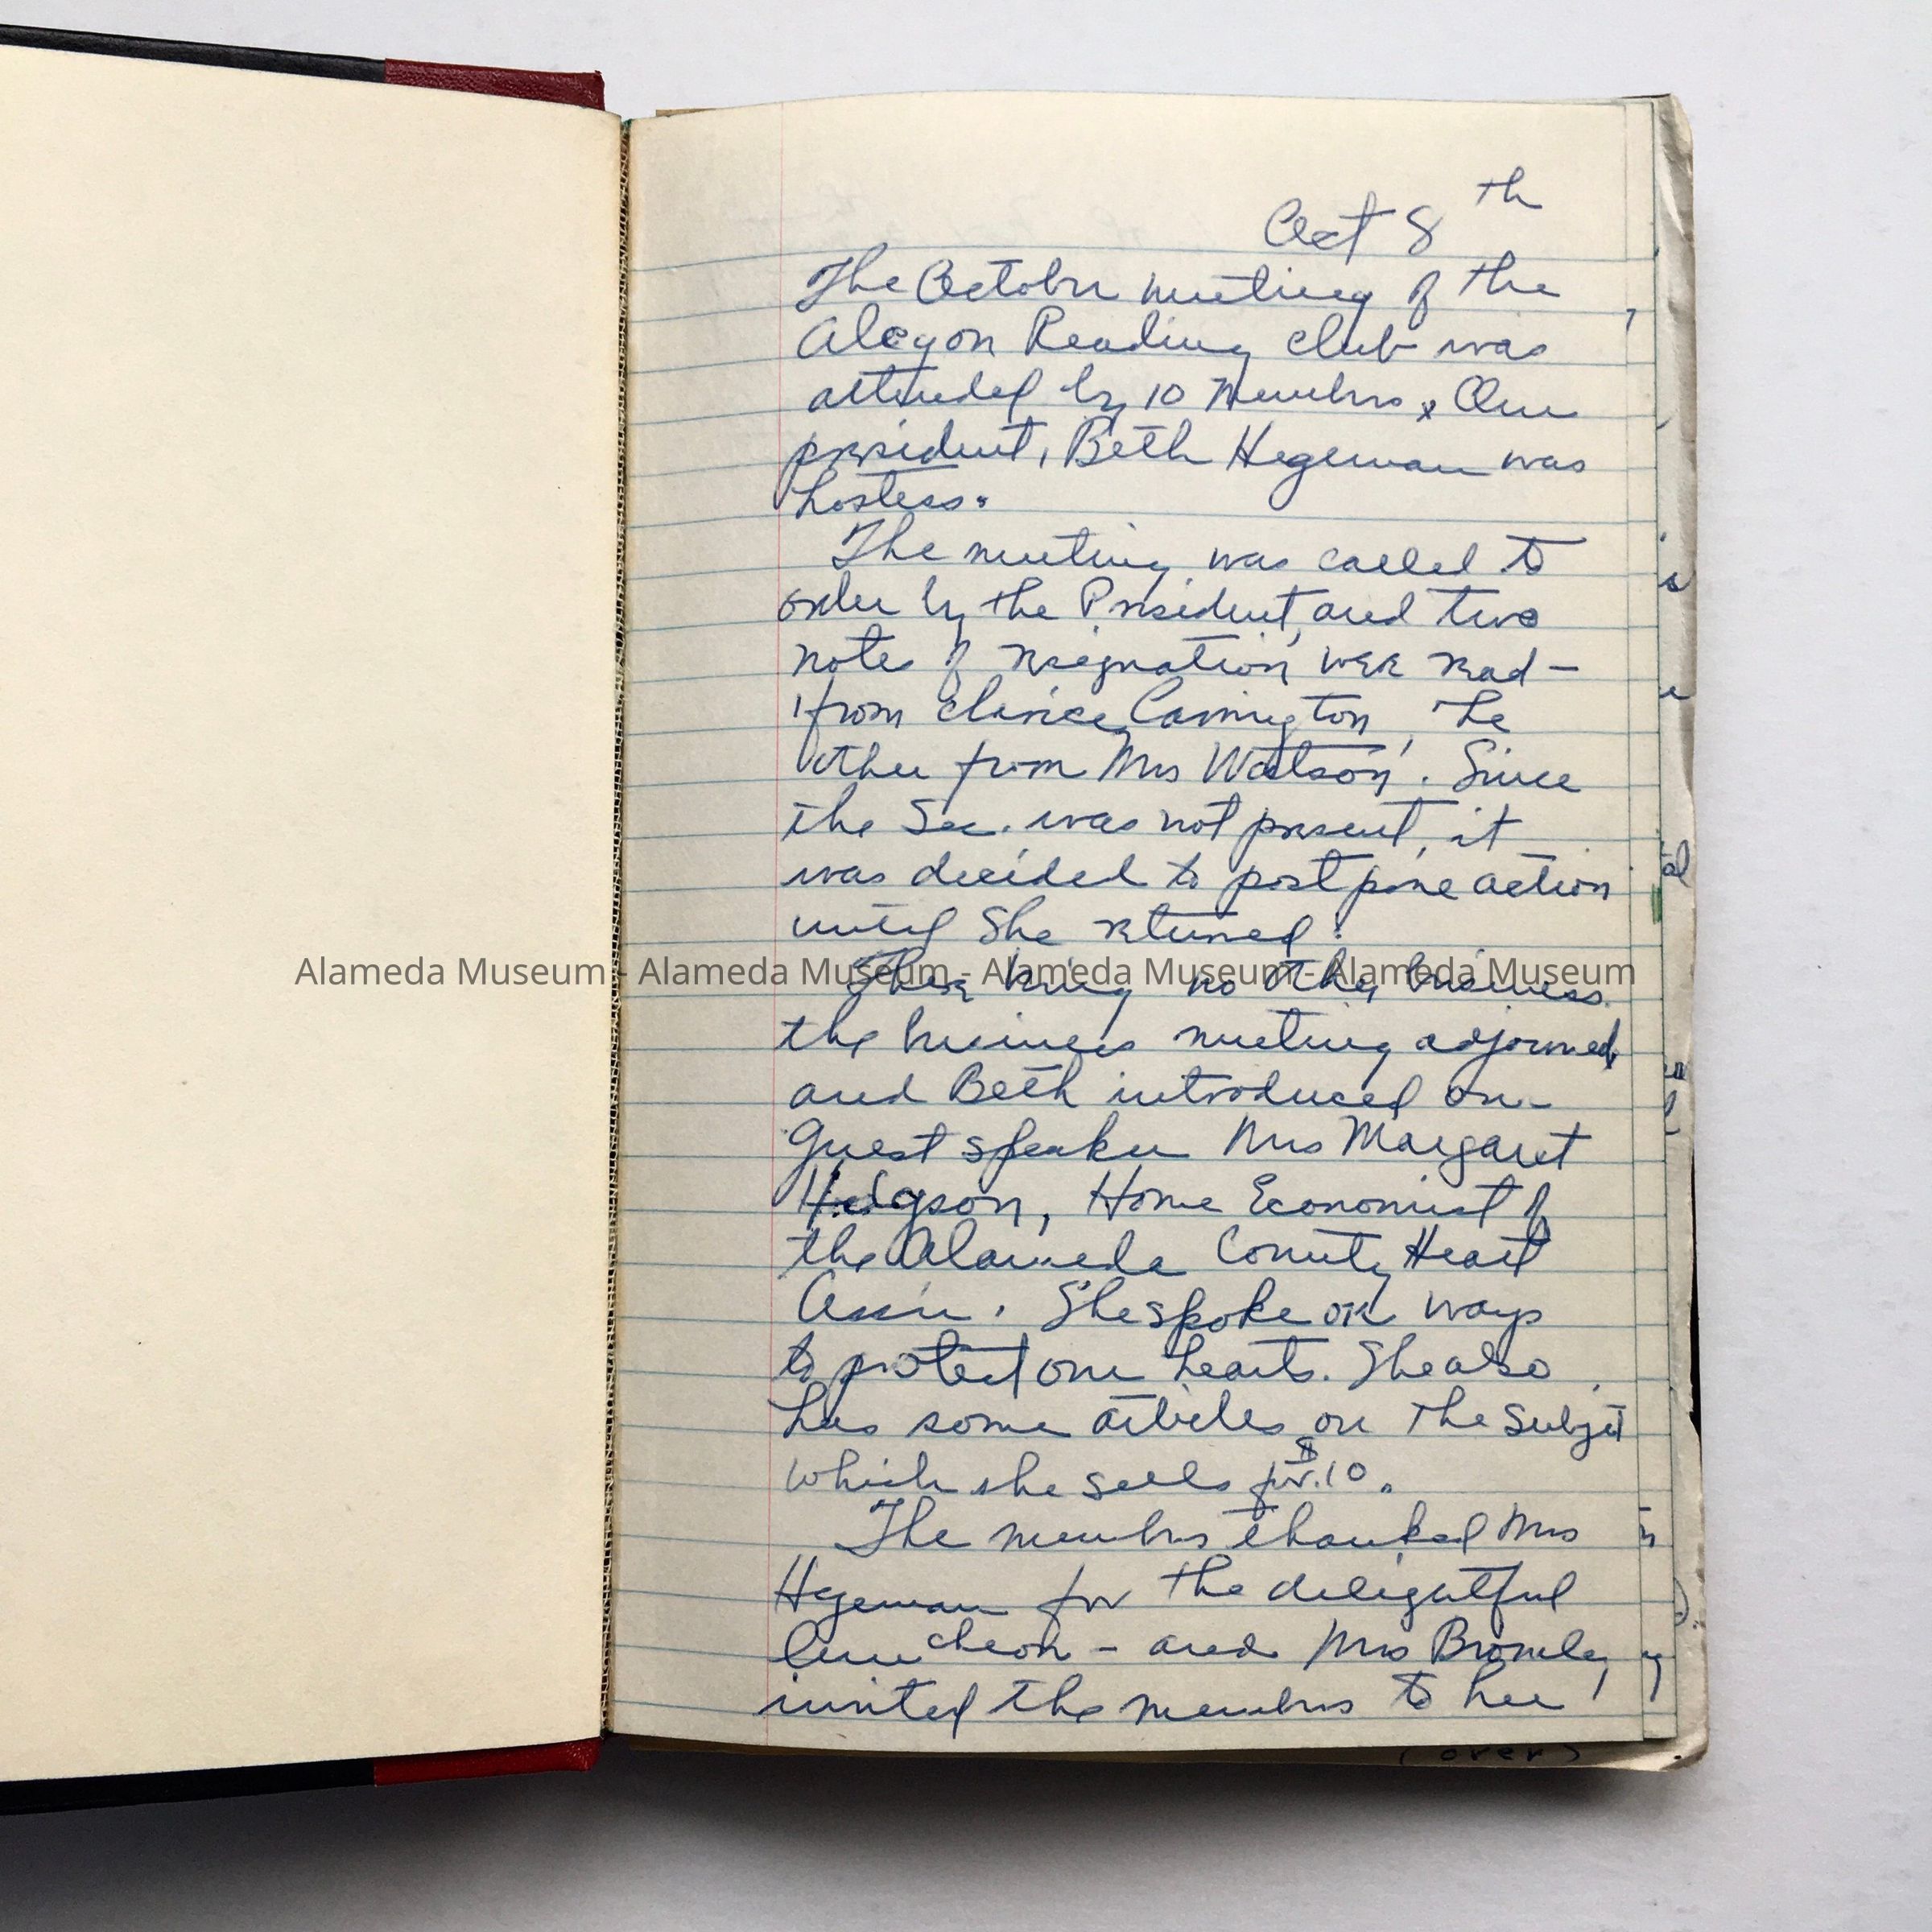 Oct 8th
The October meeting of the
Alcyon Reading club was
attended by 10 members. Our
president, Beth Hegeman was
hostess.
The meeting was called to
order by the President, and two
note of resignation were read -
1 from Clarice Carrington, the
other from Mrs Watson. Since
the Sec. was not present, it
was decided to postpone action
until She returned.
Alameda Museum - Alameda Museum - Alameda Museum - Alameda Museum
There being no other business
the business meeting adjourned,
and Beth introduced our
guest speaker Mrs Margaret
Hodgson, Home Economist of
the Alameda County Heart
Assn. She spoke on ways
to protect our hearts. She also
has some articles on the subject
which she sells for $.10.
The members thanked Mrs
Hegeman for the delightful
luncheon - and Mrs Bromley
invited the members to her
(over)